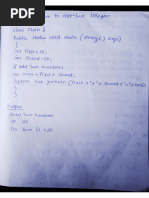 to Add Two Integers
class Main {
Public static void main (string [] args)
{
int first = 10;
int Second = 20;
// add two numbers
int sum = first + second;
System.out.println (first + " + " + second + " = " + sum
}
}
Output
Enter two numbers
10 20
The sum is = 30